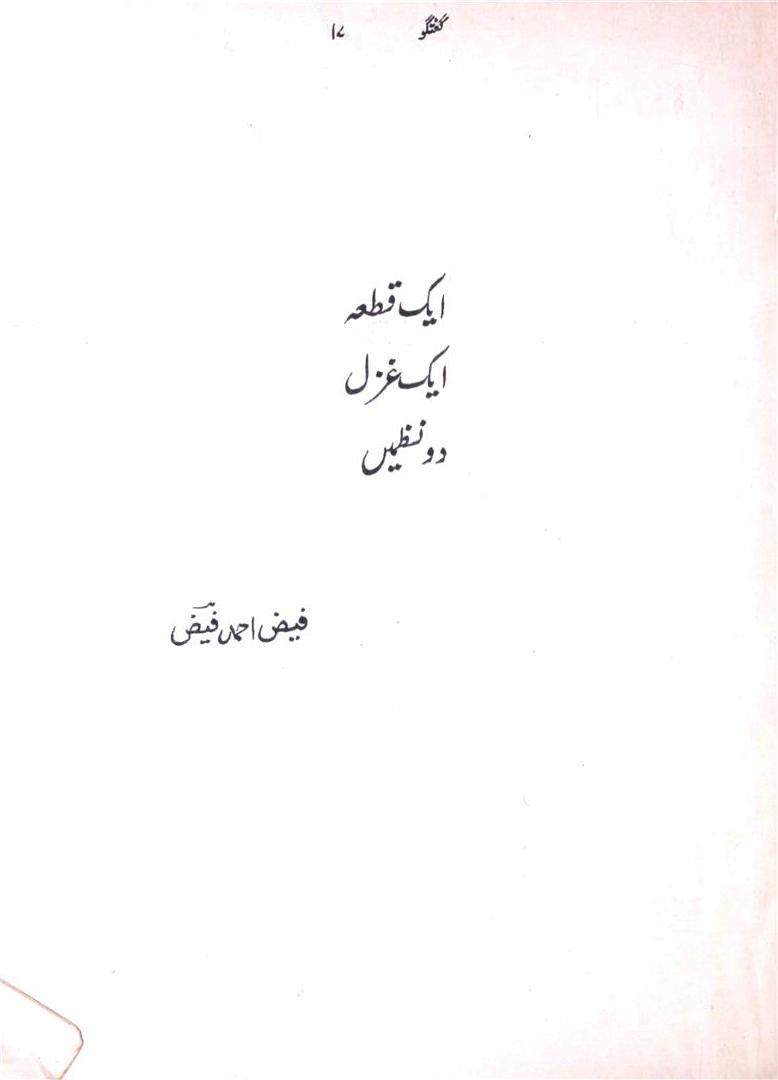 گفتگو ۱۷
ایک قطعہ
ایک غزل
دو نظمیں
فیض احمد فیضؔ